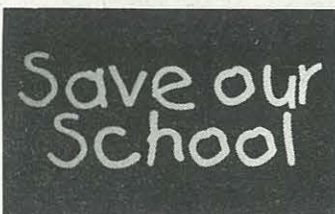 Save our
School